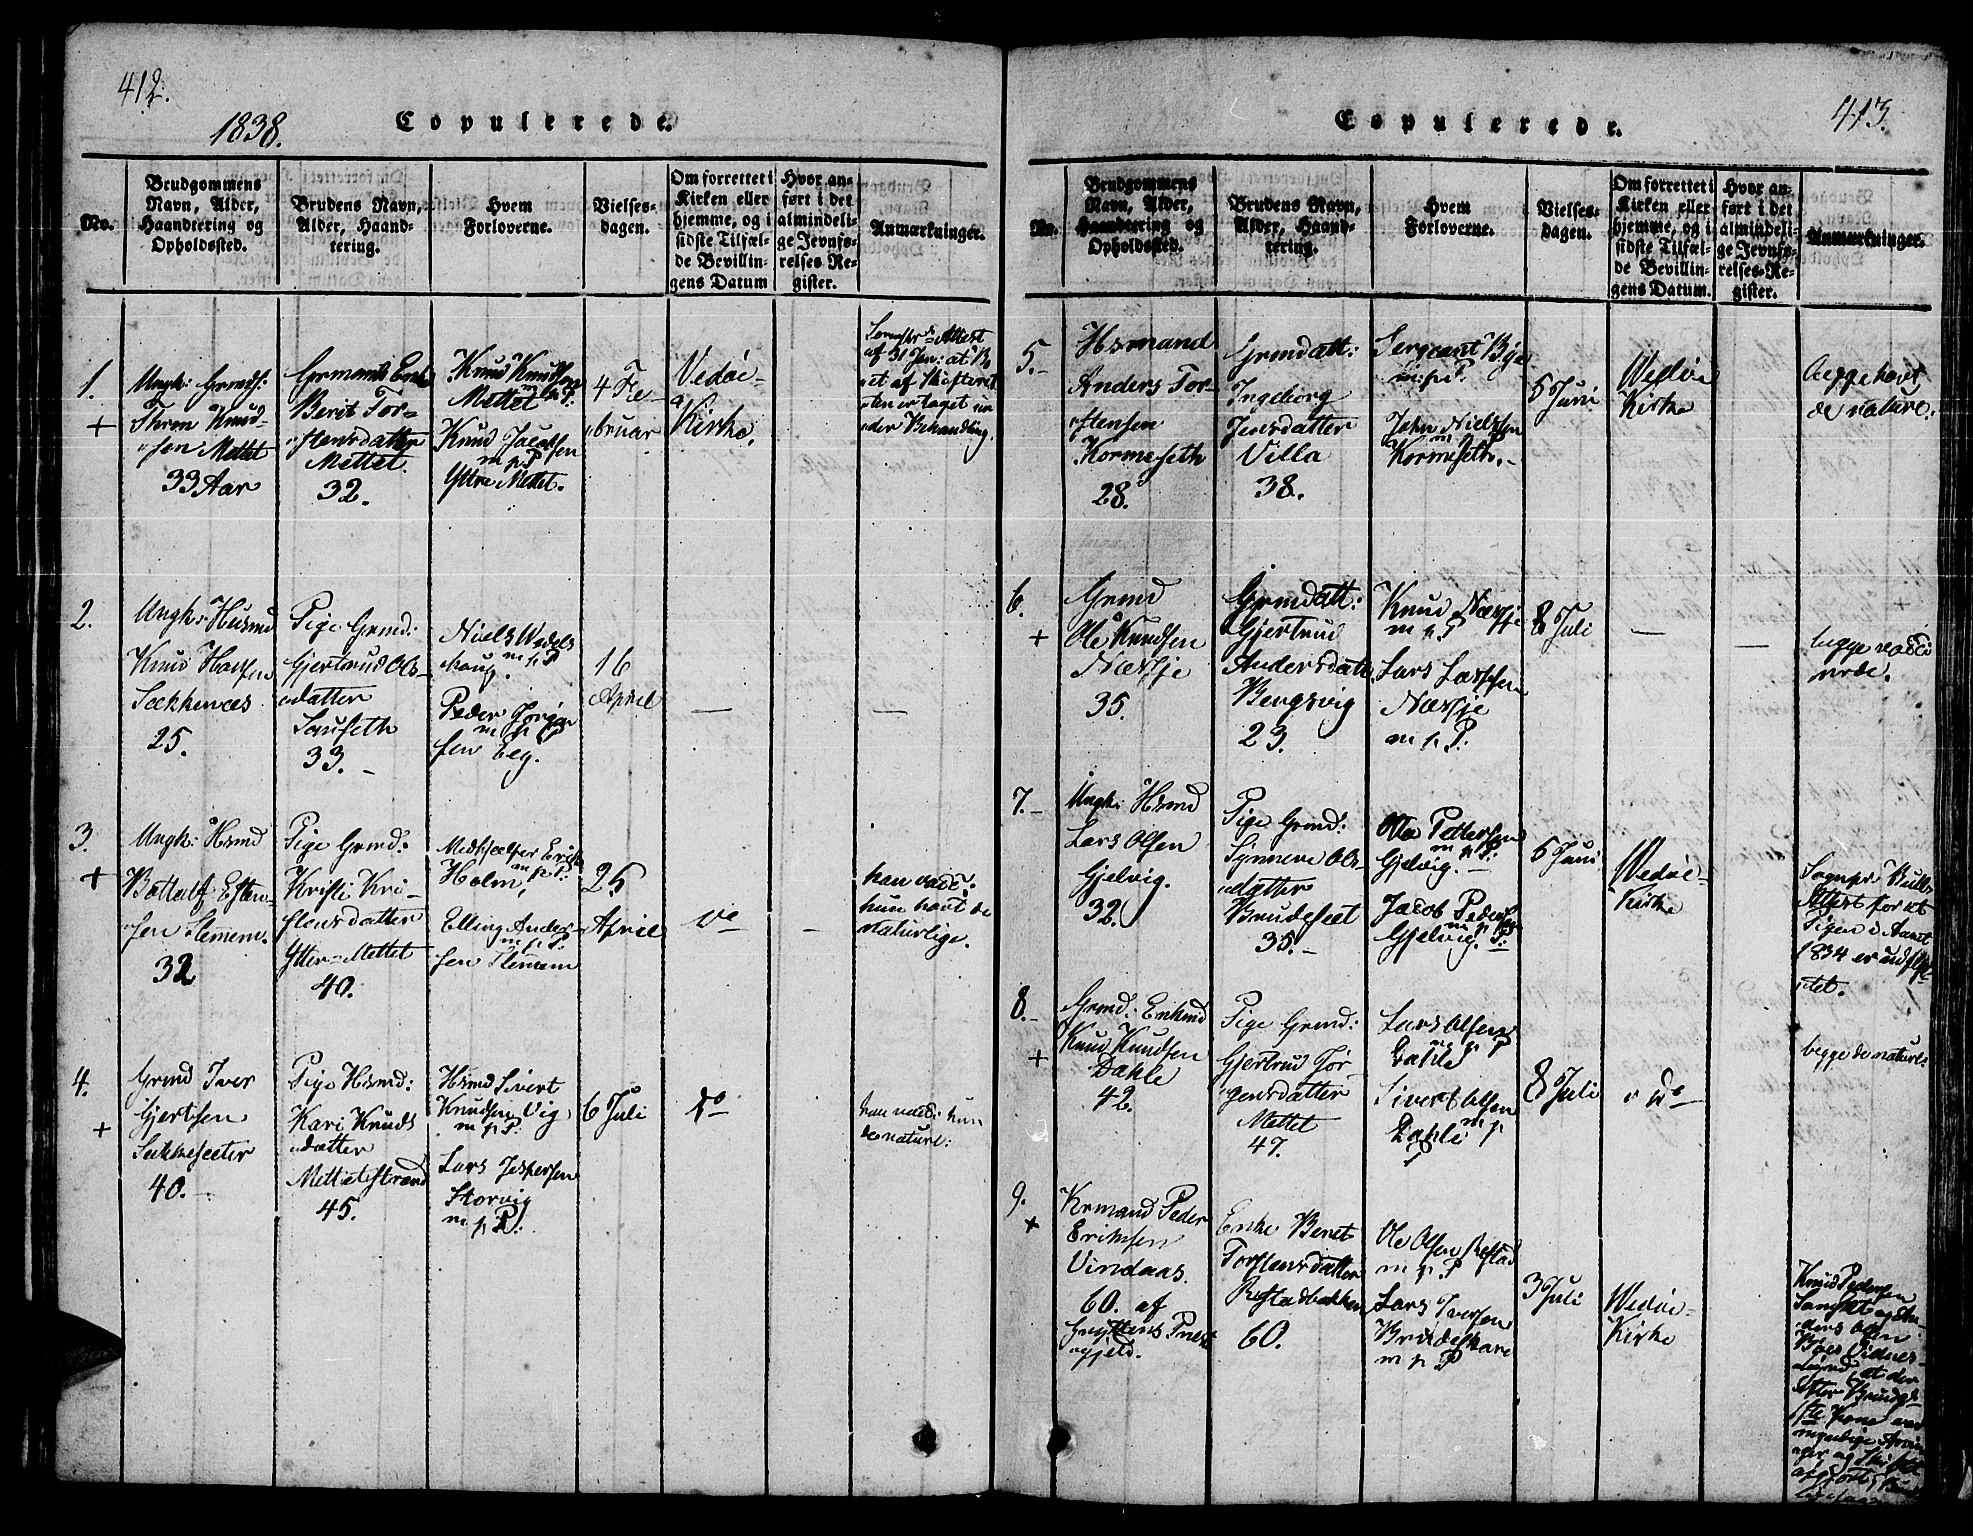 412.
1838.
Copulerede.
No.
Brudgommens
Navn, Alder,
Haandtering og
Opholdssted.
Brudens Navn,
Alder, Haand-
tering.
Hvem
Forloverne.
Vielses-
dagen.
Om forrettet i
Kirken eller
hjemme, og i
sidste Tilfæl-
de Bevillin-
gens Datum
Hvor an-
ført i det
almindeli-
ge Jevnfø-
relses-Re-
gister.
Anmærkninger.
1.
+
Ungk: Grmds:
Knud-
sen Mettet
33 Aar
Grmands Enke
Berit Tor-
stensdatter
Mettet.
32.
Knud Knudsen
Mettet m p P:
Knud Jacobsen
m p P
Yttre Mettet.
4 Fe-
bruar
Vedøe-
Kirke.
Attest
af 31 Jan: at
et af Skifteret
ten er taget un
der Behandling.
2.
Ungk: Husmd
Knud
Sækkenæs
25.
Pige Grmd:
Gjertrud Ols-
datter
Sauseth
33.-
Niels Wedels
m p P
haug.
Peder Jørgen
m p P
sen Eeg.
16
April
—
—
3.
+
Ungk: Hsmd
Bottolf Esten-
sen Flemem.
32
Pige Grmd:
Kristi Kri-
stensdatter
Ytter-Mettet
40.
Medhjælper Erik
m p P:
Holm,
Elling Ander-
m p P.
sen Flemem
25
April
do
-
han vacc:
hun havt de
naturlige.
4.
+
Grmd Iver
Gjertsen
Sekkesæter
40.-
Pige Hsmd:
Kari Knuds
datter
Mettetstrand
45.
Hsmd Sivert
Knudsen Vig
m p P:
Lars Jespersen
Storvig
m p P:
6 Juli
do
han vacc: hun
de nature:
413.
Copulerede.
No.
Brudgommens
Navn, Alder,
Haandtering og
Opholdssted.
Brudens Navn,
Alder, Haand-
tering.
Hvem
Forloverne.
Vielses-
dagen.
Om forrettet i
Kirken eller
hjemme, og i
sidste Tilfæl-
de Bevillin-
gens Datum.
Hvor an-
ført i det
almindeli-
ge Jevnfø-
relses-Re-
gister.
Anmærkninger.
5.-
Hsmand
Anders Tor-
stensen
Kormeseth
28.
Grmdatt:
Ingeborg
Jensdatter
Villa
38.
Sergeant Bye
m p P.
John Nielssen
m P
Kormeseth.-
5 Juni
Wedøe
Kirke
begge havt
de nature.
6.
+
Grmd
Ole Knudsen
Næsje
35.
Grmdatt:
Gjertrud
Andersdatter
Bergsvig
23.
Knud Næsje
m p P
Lars Larssen
Næsje
m p P:
8 Juli
—
—
begge vacci
nede.
7.-
Ungk: Hsmd
Lars Olsen
Gjelvig.
32.
Pige Grmd:
Synneve Ols-
datter
Brudeset
35.-
Ole Pettersen
m p P:
Gjelvig.-
Jacob Pedersen
m p
Gjelvig. P:
5 Juni
Wedøe-
Kirke
Sognepr: Bulls
Attest for at
Pigen i Aaret
1834 er udflyt-
tet.
8.-
+
Grmd: Enkmd
Knud Knudsen
Dahle
42.
Pige Grmd:
Gjertrud Jør-
gensdatter
Mettet
47.
Lars Olsen
m p P
Dahle
Sivert Olsen
m p
Dahle
P
8 Juli
do
begge de nature:
9.
+
Krmand Peder
Eriksen
Vindaas.
60. af
Gryttens Præste
gjeld.
Enke Beret
Torstensdatter
Røstadbakken
60.
Ole Olsen Røstad
m p P
Lars Iversen
Brudeskare
m p P
3 Juli
Wedøe-
Kirke
Knud Pedersen
og An-
ders Olsen
Vidnes-
byrd at der
efter Brudg:
1ste Kone
Arvin
ger og Skifte
afgjort